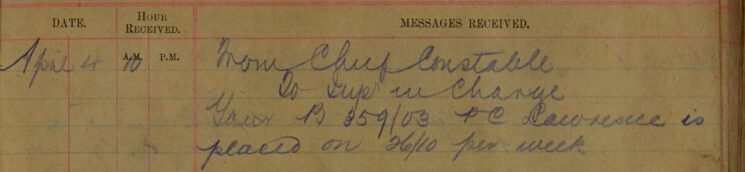 DATE. HOUR RECEIVED. MESSAGES RECEIVED.
A.M. P.M.
April 4 10 From Chief Constable
To Supt in Charge
Your B 359/03 PC Lawrence is
placed on 26/10 per week